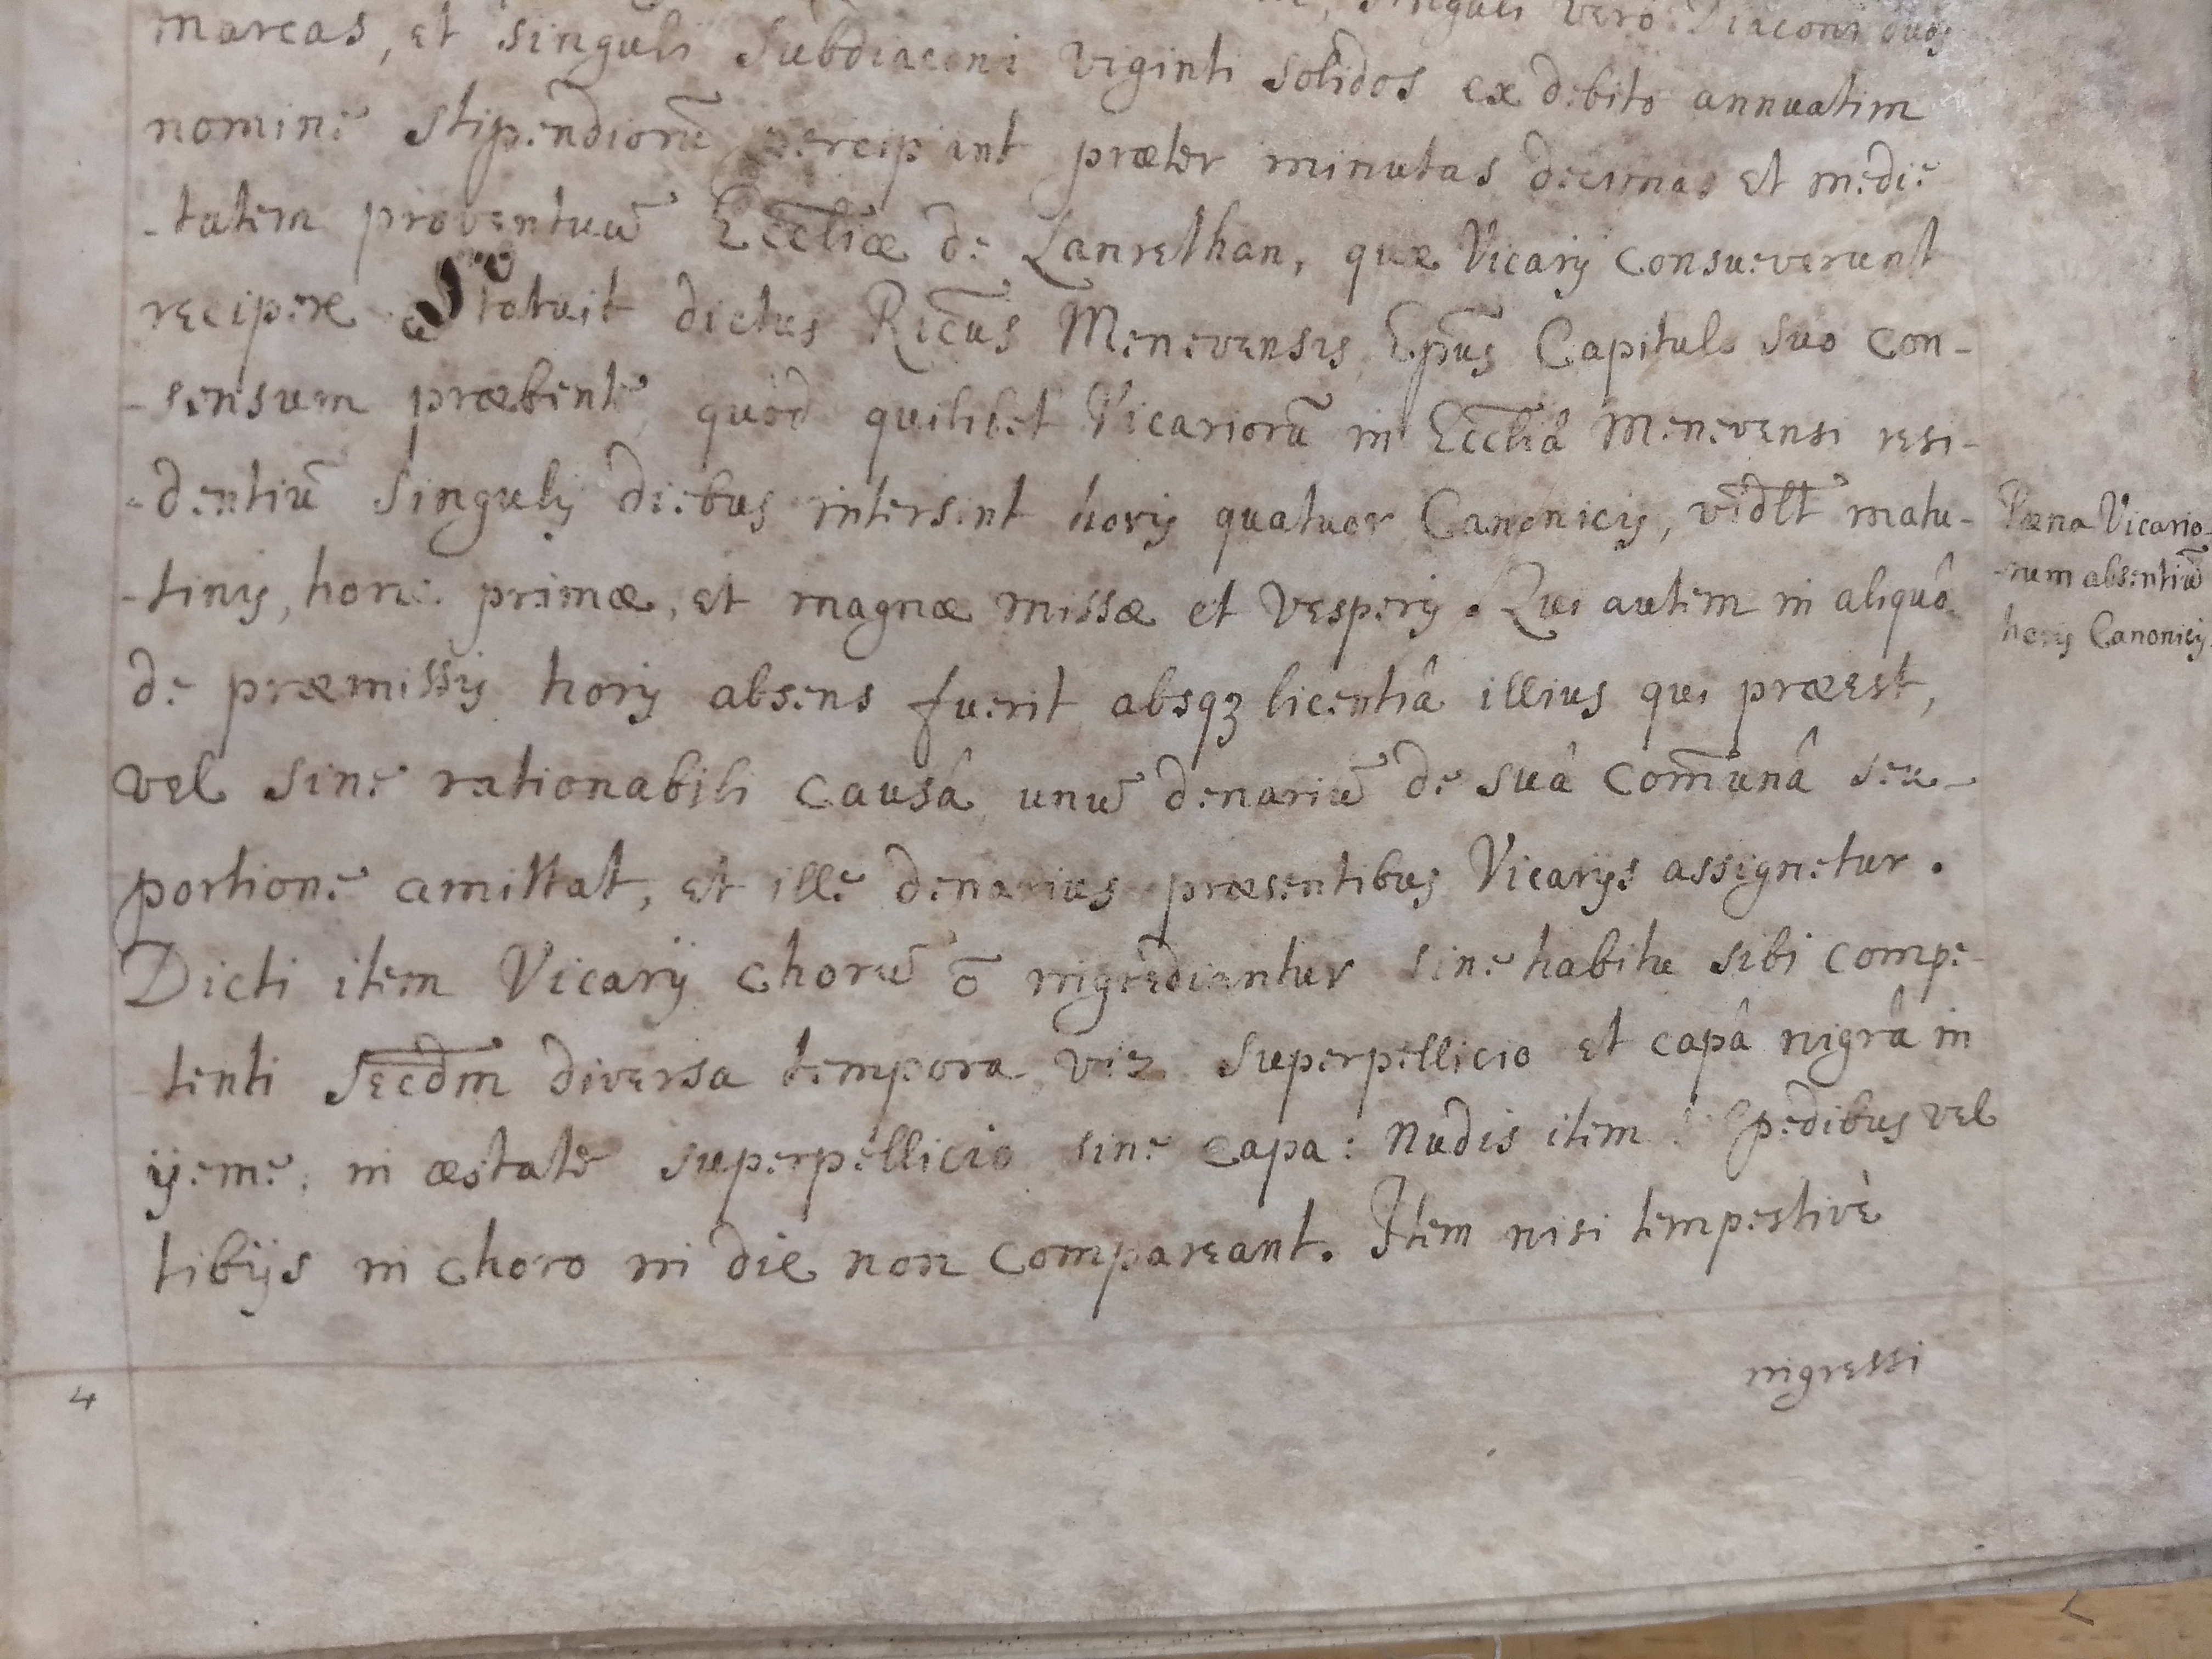 singuli vero Diaconi duos
marcas, et singuli Subdiaconi viginti solidos ex debito annuatim
nomine stipendiorū percipiant præter minutas decimas et medie
-tatem proventuū Ecclīæ de Lanrethan, quæ Vicarij consueverunt
recipere Statuit dictus Ricūs Menevensis Epūs Capitulo suo con-
-sensum præbente, quòd quilibet Vicariorū in Ecclīâ Menevensi resi-
-dentiū singulis diebus intersint horis quatuor Canonicis, vidlt̄ matu-
-tinis, horæ primæ, et magnæ missæ et vesperis. Qui autem in aliquâ
de præmissis horis absens fuerit absqȝ licentiâ illius qui præest,
vel sine rationabili causâ unū denariū de suâ com̄unâ seu-
portione amittat, et ille denarius præsentibus Vicarijs assignetur.
Dicti item Vicarij chorū ō ingrediantur sine habitu sibi compe-
tenti Secdm̄ diversa tempora viz superpellicio et capâ nigrâ in
ijeme, in æstate superpellicio sine capa: Nudis item pedibus vel
tibijs in choro in die non compareant. Item nisi tempestivè
ingressi
Pæna Vicario-
-rum absentiū
horis Canonicis
4